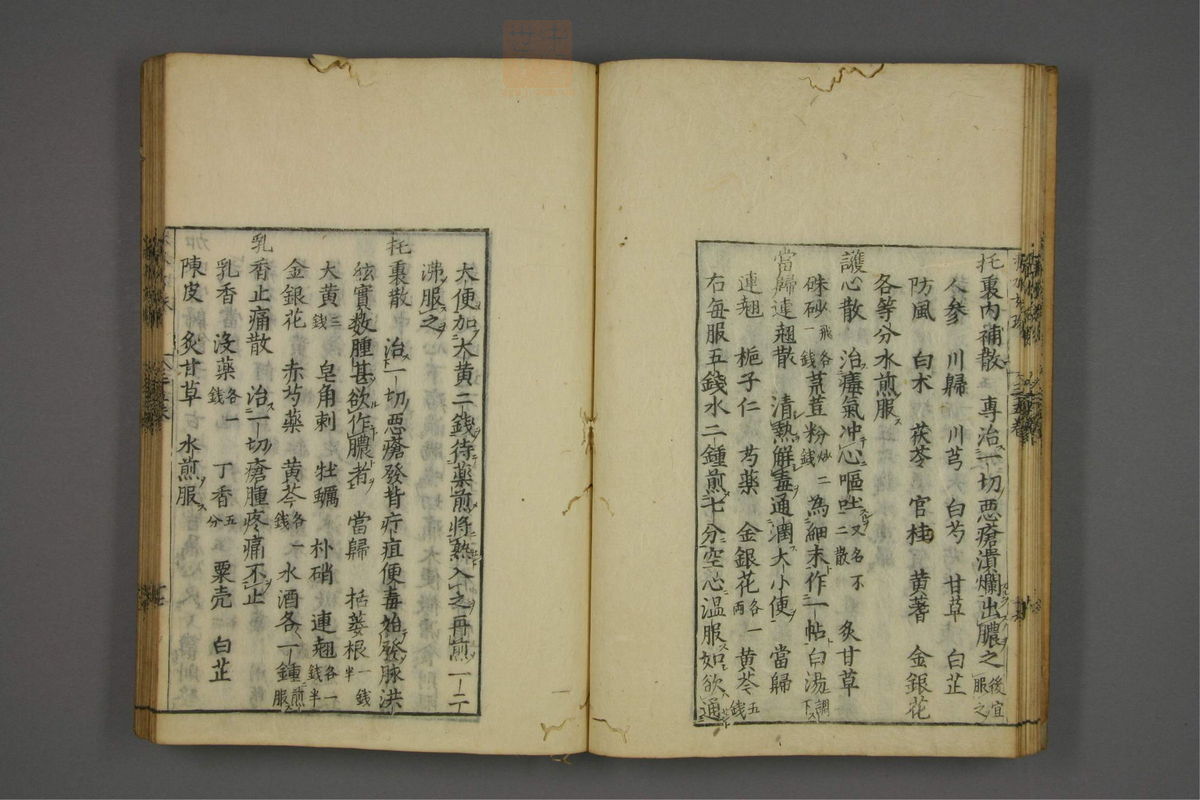 托裏內補散　專治一切惡瘡潰爛出膿之後宜服之
人參　川歸　川芎　白芍　甘草　白芷
防風　白朮　茯苓　官桂　黃蓍　金銀花
各等分水煎服
護心散　治毒氣冲心嘔吐又名不二散　炙甘草
硃砂飛各一錢　菉荳粉炒二錢　為細末作一帖白湯調下
當歸連翹散　清熱解毒通潤大小便　當歸
連翹　梔子仁　芍藥　金銀花各一兩　黃芩五錢
右每服五錢水二鍾煎七分空心溫服如欲通
大便加大黃二錢待藥煎將熟入之再煎一二
沸服之
托裏散　治一切惡瘡發背疔疽便毒始發脉洪
弦實數腫甚欲作膿者　當歸　栝蔞根一錢半
大黃三錢　皂角刺　牡蠣　朴硝　連翹各一錢半
金銀花　赤芍藥　黃芩各一錢　水酒各一鍾煎服
乳香止痛散　治一切瘡腫疼痛不止
乳香　沒藥各一錢　丁香五分　粟壳　白芷
陳皮　炙甘草　水煎服